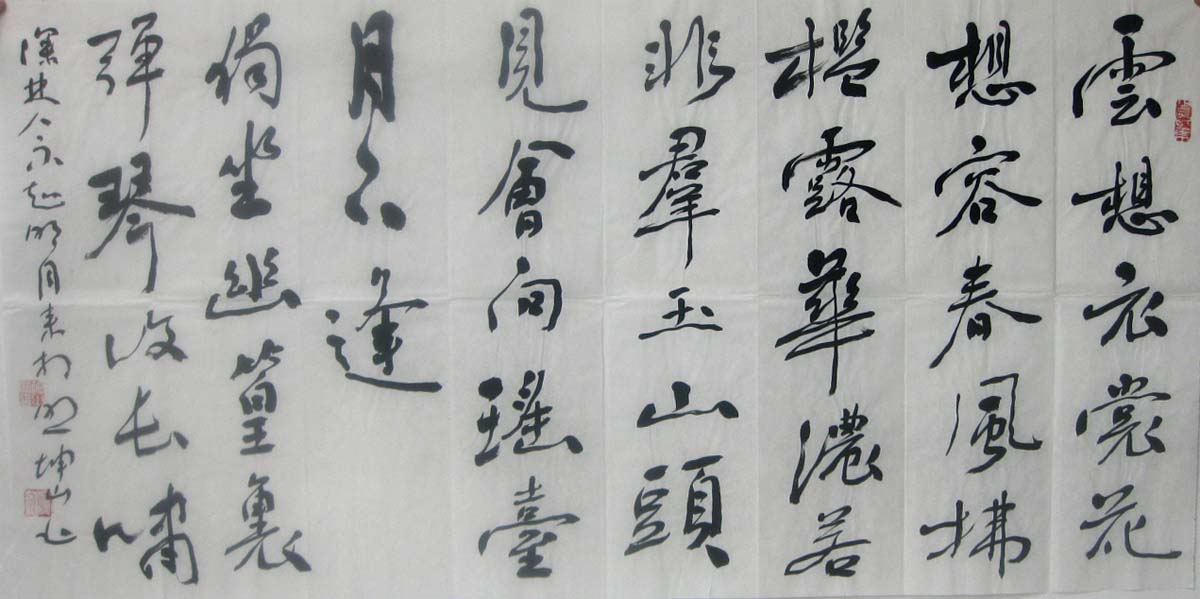 雲想衣裳花
想容春風拂
檻露華濃若
非羣玉山頭
見會向瑤臺
月下逢
獨坐幽篁裏
彈琴復長嘯
深林人不知明月來相照坤山